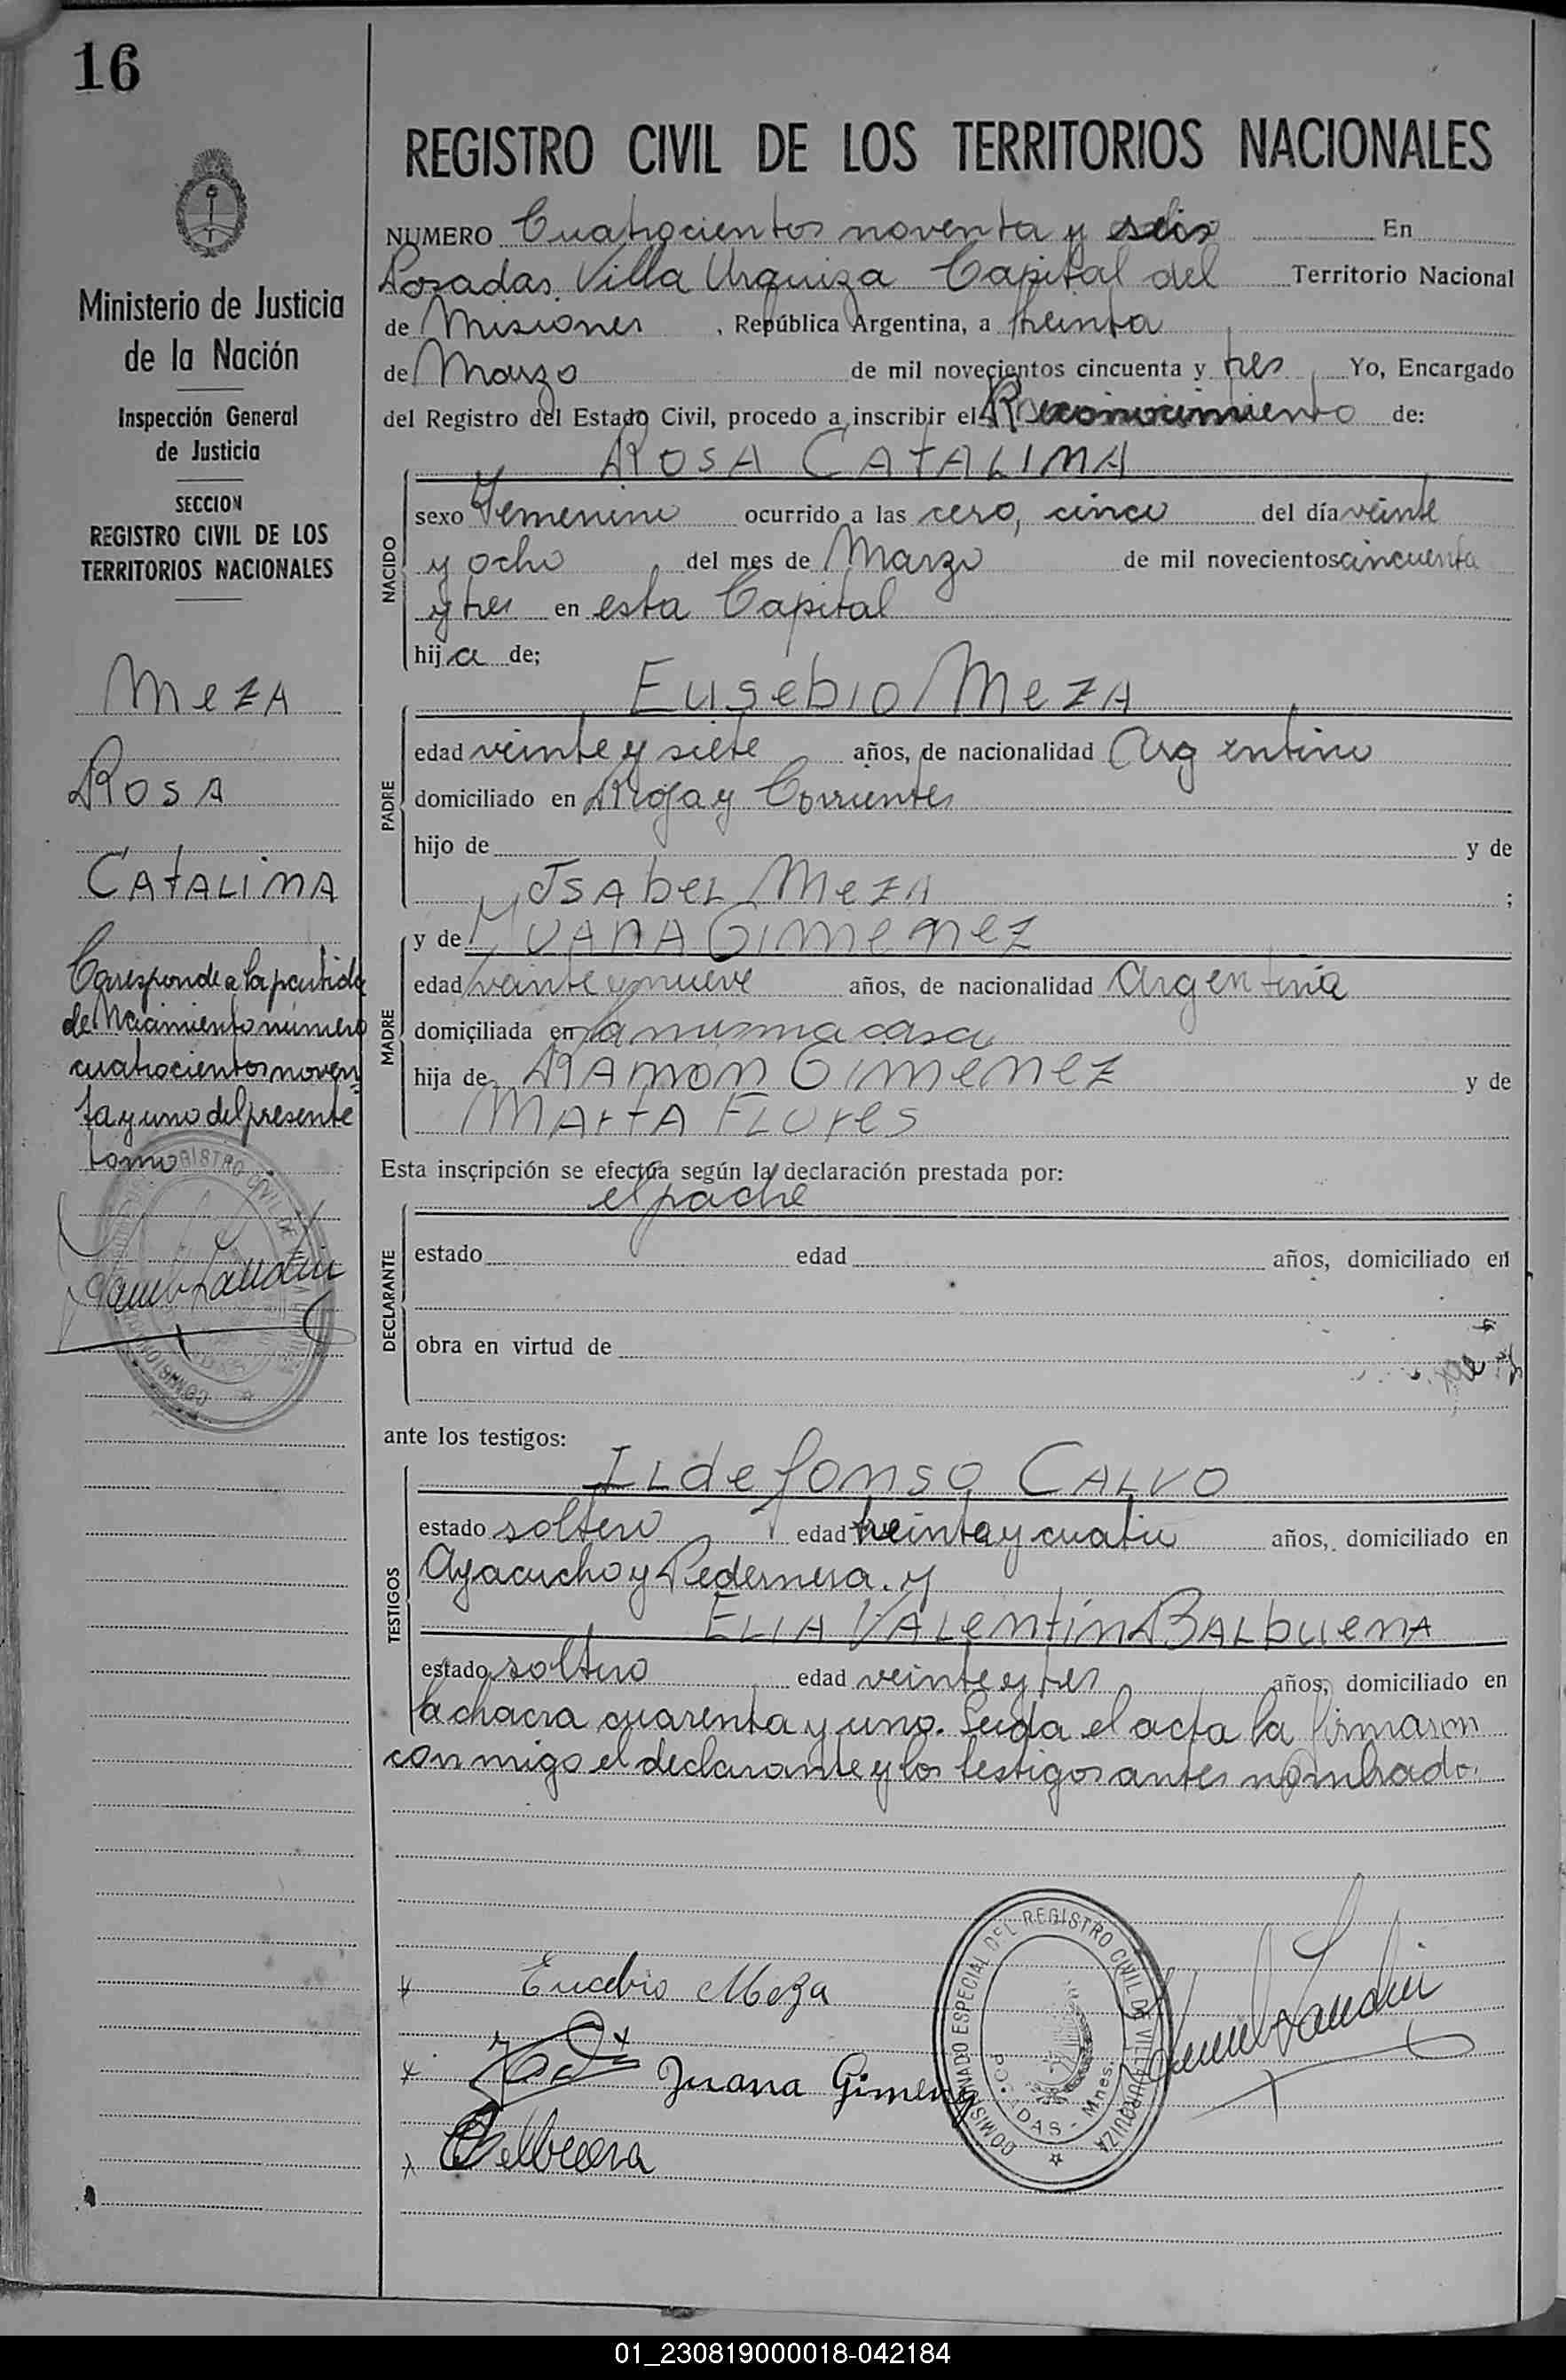 16
Ministerio de Justicia
de la Nación
Inspección General
de Justicia
SECCION
REGISTRO CIVIL DE LOS
TERRITORIOS NACIONALES
MEZA
ROSA
CATALINA
Corresponde a la partida
de Nacimiento número
cuatrocientos noven
ta y uno del presente
tomo
REGISTRO CIVIL DE LOS TERRITORIOS NACIONALES
NUMERO Cuatrocientos noventa y seis En
Posadas. Villa Urquiza Capital del Territorio Nacional
de Misiones , República Argentina, a treinta
de Marzo de mil novecientos cincuenta y tres Yo, Encargado
del Registro del Estado Civil, procedo a inscribir el Reconocimiento de:
ROSA CATALINA
NACIDO
sexo Femenino ocurrido a las cero, cinco del día veinte
y ocho del mes de Marzo de mil novecientos cincuenta
y tres en esta Capital
hija de;
EUSEBIO MEZA
PADRE
edad veinte y siete años, de nacionalidad Argentino
domiciliado en Rioja y Corrientes
hijo de y de
ISABEL MEZA ;
MADRE
y de JUANA GIMENEZ
edad veinte y nueve años, de nacionalidad Argentina
domiciliada en la misma casa
hija de RAMON GIMENEZ y de
MARTA FLORES
Esta inscripción se efectúa según la declaración prestada por:
el padre
DECLARANTE
estado edad años, domiciliado en
obra en virtud de
ante los testigos:
ILDEFONSO CALVO
TESTIGOS
estado soltero edad treinta y cuatro años, domiciliado en
Ayacucho y Pedernera. y
ELIA VALENTIN BALBUENA
estado soltero edad veinte y tres años, domiciliado en
la chacra cuarenta y uno. Leida el acta la firmaron
conmigo el declarante y los testigos antes nombrado.
Eucebio Meza
Juana Gimenez
COMISIONADO ESPECIAL DEL REGISTRO CIVIL DE VILLA URQUIZA
POSADAS - Mnes.
01_230819000018-042184